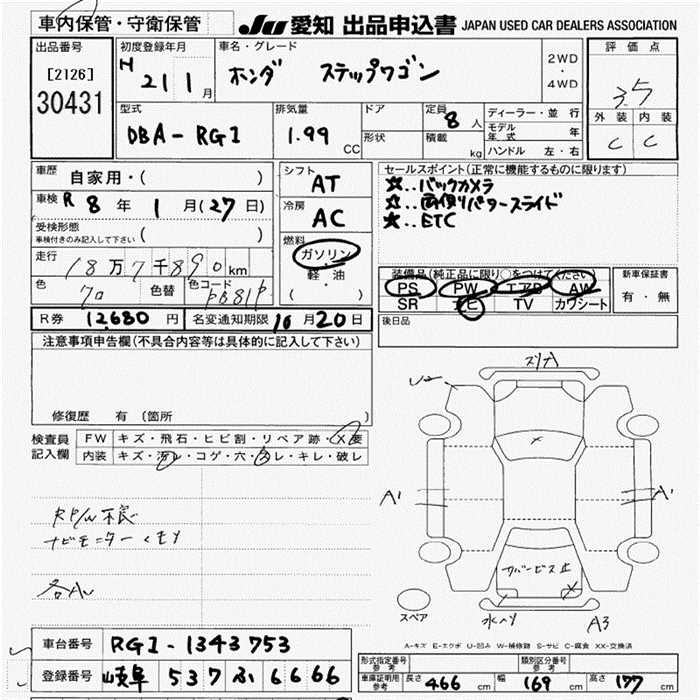 車内保管・守衛保管
JU 愛知 出品申込書 JAPAN USED CAR DEALERS ASSOCIATION
出品番号 [2126] 30431
初度登録年月 H 21 1月
車名・グレード ホンダ ステップワゴン
2WD・4WD
評価点 3.5
外装 内装
C C
型式 DBA-RG1
排気量 1.99 CC
ドア 形状
定員 8人
積載 kg
ディーラー・並行
モデル年式 年
ハンドル 左・右
車歴 自家用・( )
車検 R 8年 1月(27日)
受検形態 車検付きのみ記入して下さい ( )
走行 18万7千890km
色 色替 色コード PB81P
シフト AT
冷房 AC
燃料 ガソリン
軽・油
( )
セールスポイント(正常に機能するものに限ります)
☆..バックカメラ
☆..両側パワースライド
☆..ETC
装備品(純正品に限り○をつけてください)
PS PW エアB AW
SR ナビ TV カワシート
新車保証書
有・無
後日品
R券 12,680円 名変通知期限 10月20日
注意事項申告欄(不具合内容等は具体的に記入して下さい)
修復歴 有(箇所 )
検査員記入欄
FW キズ・飛石・ヒビ割・リペア跡・X要
内装 キズ・汚レ・コゲ・穴・スレ・キレ・破レ
R P/W 不良
ナビモニターくもり
スリ穴
U2
A1
A1
A3
スペア
A-キズ E-エクボ U-凹み W-補修跡 S-サビ C-腐食 XX-交換済
車台番号 RG1-1343753
登録番号 岐阜 537 ふ 6666
形式指定番号 参考
類別区分番号 参考
車庫証明用 参考 長さ 466cm 幅 169cm 高さ 177cm